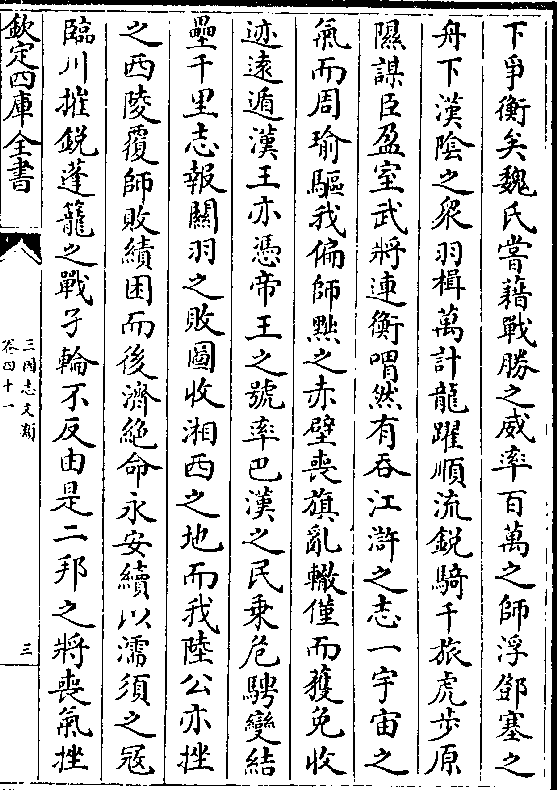 下爭衡矣魏氏嘗藉戰勝之威率百萬之師浮鄧塞之
舟下漢陰之衆羽楫萬計龍躍順流鋭騎千旅虎步原
隰謀臣盈室武將連衡喟然有吞江滸之志一宇宙之
氣而周瑜驅我偏師黜之赤壁喪旗亂轍僅而獲免收
迹遠遁漢王亦憑帝王之號率巴漢之民乗危騁變結
壘千里志報關羽之敗圖收湘西之地而我陸公亦挫
之西陵覆師敗績困而後濟絶命永安續以濡須之冦
臨川摧鋭蓬籠之戰孑輪不反由是二邦之將喪氣挫
欽定四庫全書
三國志文類
卷四十一
三